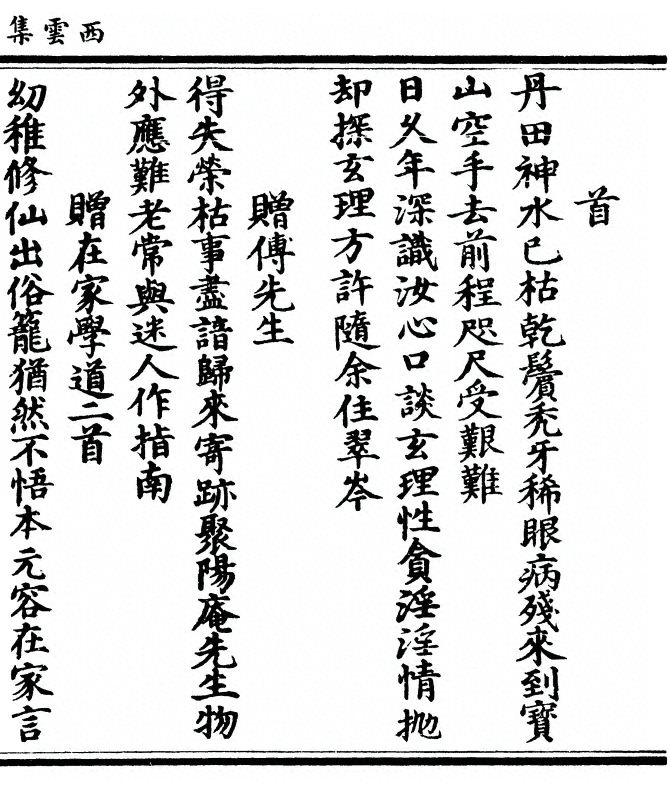 西雲集
首
丹田神水已枯乾鬢禿牙稀眼病殘來到寶
山空手去前程咫尺受艱難
日久年深識汝心口談玄理性貪淫淫情拋
却探玄理方許隨余住翠岑
贈傅先生
得失榮枯事盡諳歸來寄跡聚陽庵先生物
外應難老常與迷人作指南
贈在家學道二首
幼稚修仙出俗籠猶然不悟本元容在家言